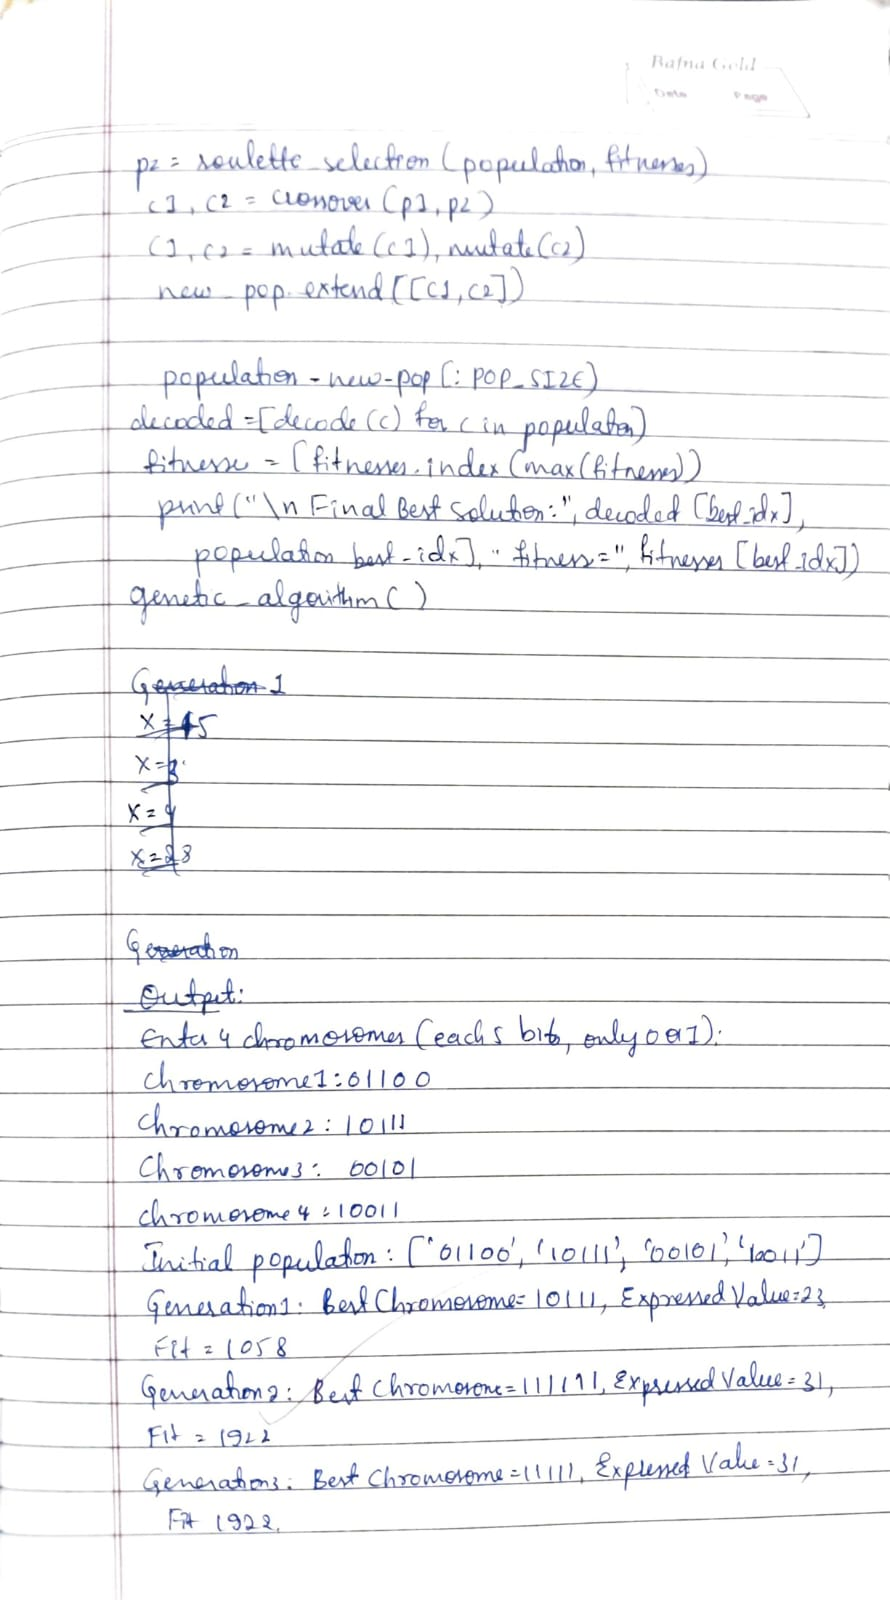 Bafna Gold
Date Page
p2 = roulette_selection (population, fitnesses)
c1, c2 = crossover (p1, p2)
c1, c2 = mutate (c1), mutate (c2)
new_pop. extend ([c1, c2])
population = new-pop [: POP_SIZE)
decoded = [decode (c) for c in population)
fitnesse = [fitnesses.index (max (fitnesses))
print ("\n Final Best Solution:", decoded [best_idx],
population best-idx], " fitness=", fitnesses [best_idx])
genetic_algorithm ( )
Generation 1
X = 15
X = 3
X = 9
X = 28
Generation
Output:
Enter 4 chromosomes (each 5 bits, only 0 or 1):
Chromosome1: 01100
Chromosome2: 10111
Chromosome3: 00101
chromosome 4 : 10011
Initial population: ['01100', '10111', '00101', '10011']
Generation1: Best Chromosome= 10111, Expressed Value=23,
Fit = 1058
Generation2: Best Chromosome = 111111, Expressed Value = 31,
Fit = 1922
Generation3: Best Chromosome = 11111, Expressed Value = 31,
Fit 1922.